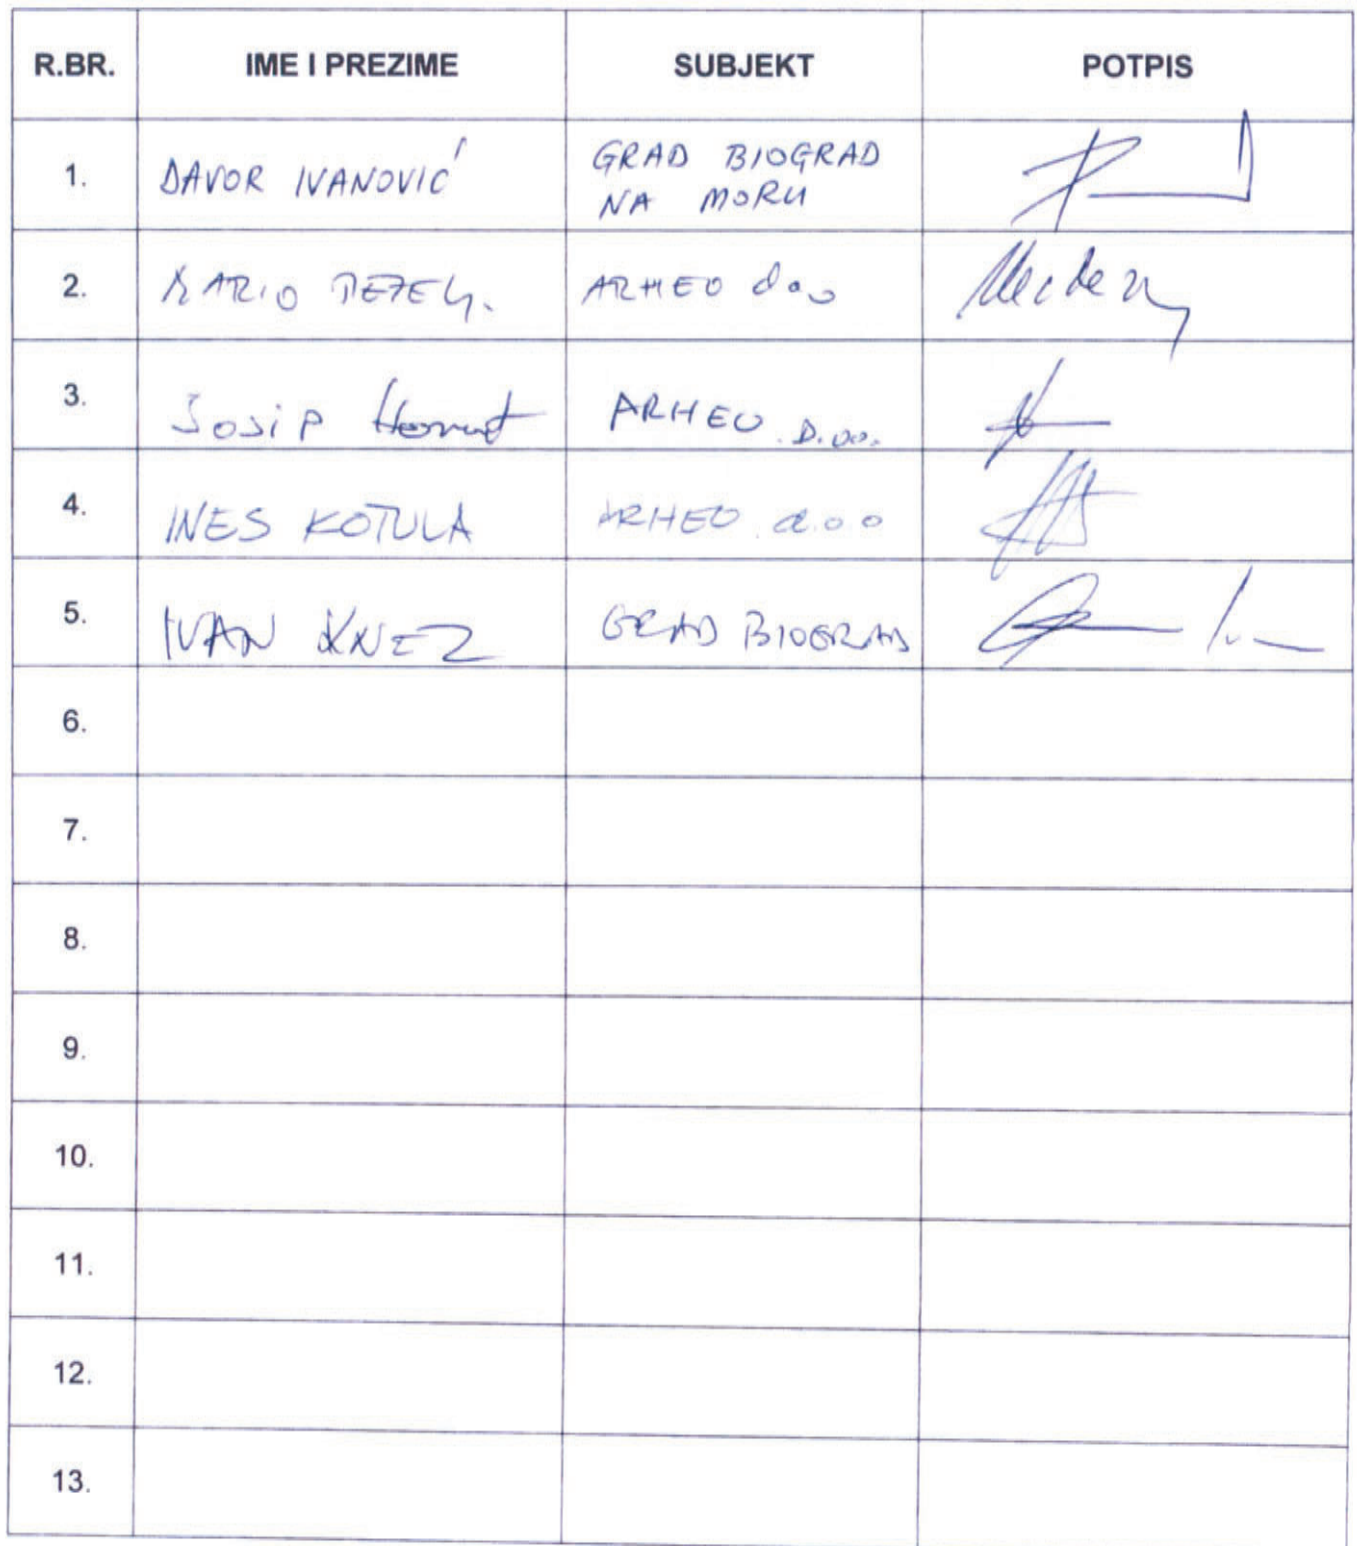 R.BR. IME I PREZIME SUBJEKT POTPIS
1. DAVOR IVANOVIĆ GRAD BIOGRAD
NA MORU
2. MARIO ARHEO doo
3. JOSIP ARHEO D.oo.
4. INES KOTULA ARHEO d.o.o
5. IVAN KNEZ GRAD BIOGRAD
6.
7.
8.
9.
10.
11.
12.
13.